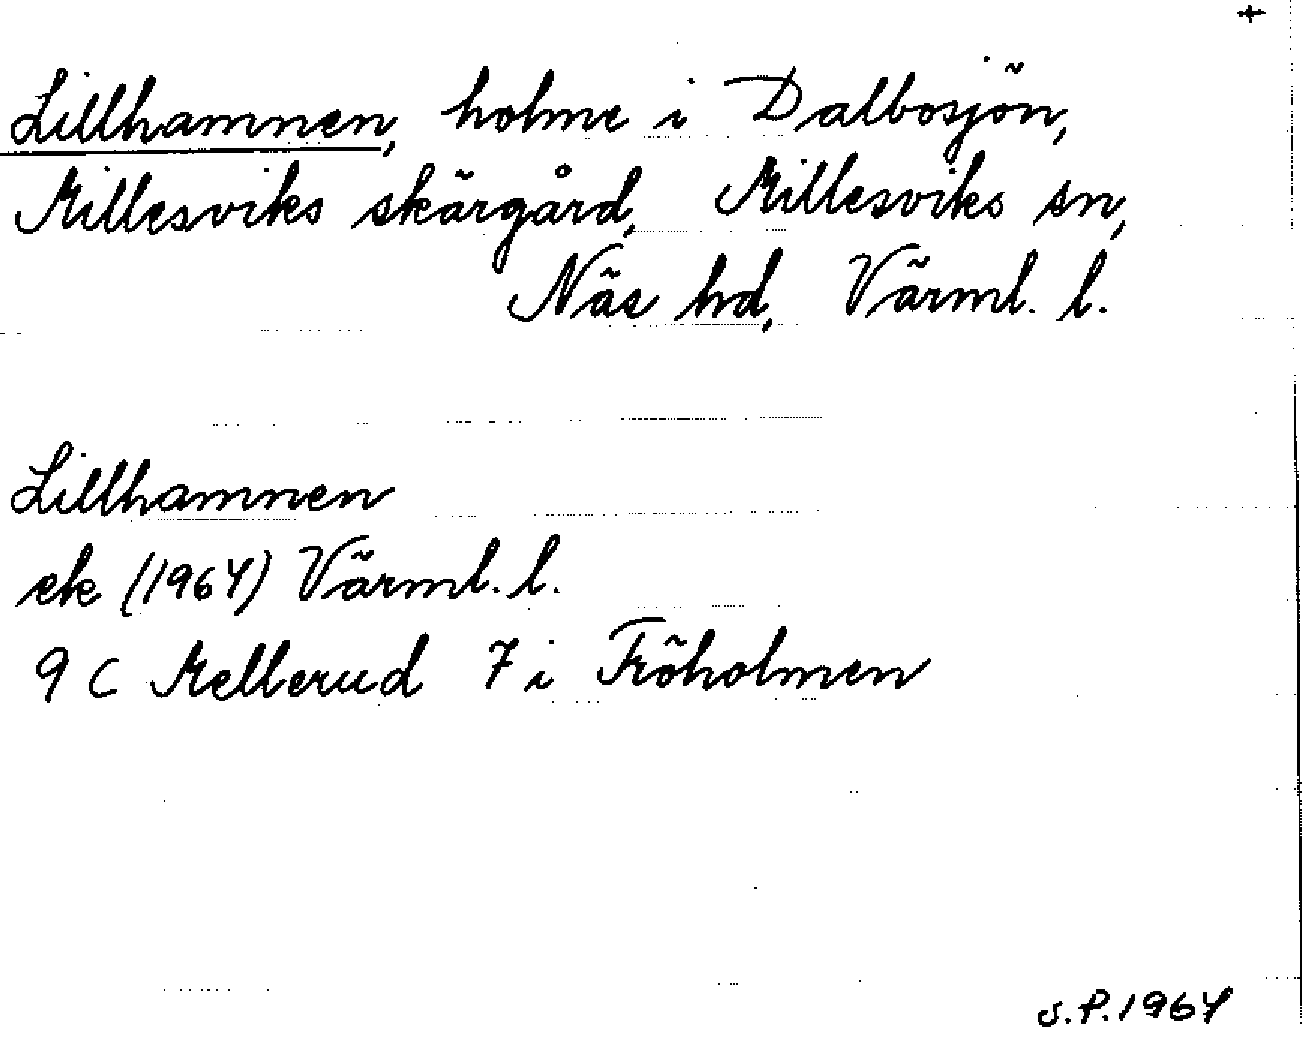 +
Lillhamnen, holme i Dalbosjön,
Millesviks skärgård, Millesviks sn,
Näs hd, Värml. l.
Lillhamnen
ek (1964) Värml. l.
9 C Mellerud 7 i Fröholmen
S.P. 1964